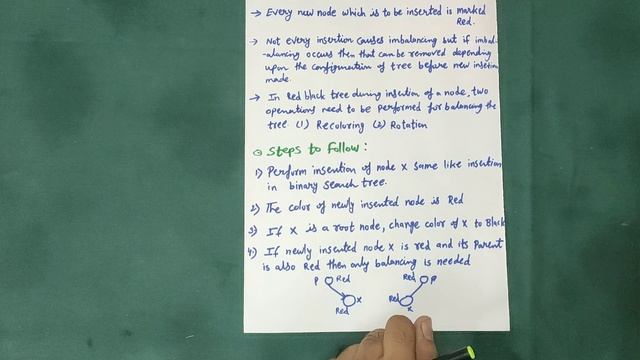 → Every new node which is to be inserted is marked
Red.
→ Not every insertion causes imbalancing but if imbal-
-alancing occurs then that can be removed depending
upon the configuration of tree before new insetion
made.
→ In Red black tree during insertion of a node, two
operations need to be performed for balancing the
tree (1) Recoloring (2) Rotation
⊙ Steps to follow :
1) Perform insertion of node X same like insertion
in binary search tree.
2) The color of newly inserted node is Red
3) If X is a root node, change color of X to Black
4) If newly inserted node X is red and its Parent
is also Red then only balancing is needed
P Red Red P
X Red
Red X